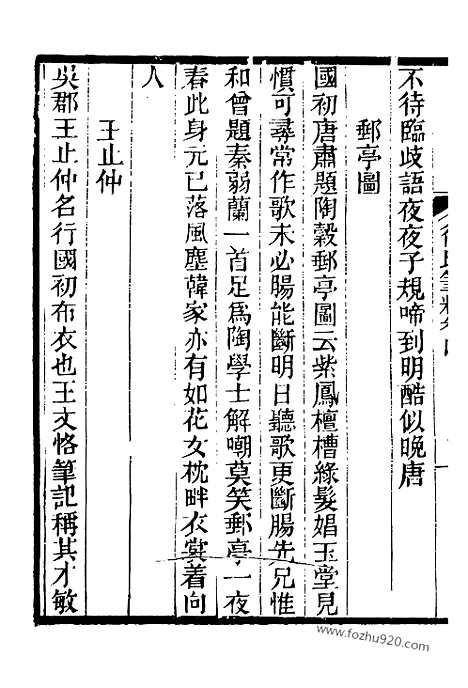 不待臨歧語夜夜子規啼到明酷似晚唐
郵亭圖
國初唐肅題陶穀郵亭圖云紫鳳檀槽綠髮娼玉堂見
慣可尋常作歌未必腸能斷明日聽歌更斷腸先兄惟
和曾題秦弱蘭一首足爲陶學士解嘲莫笑郵亭一夜
春此身元已落風塵韓家亦有如花女枕畔衣裳着向
人
王止仲
吳郡王止仲名行國初布衣也王文恪筆記稱其才敏
www.fozhu920.com